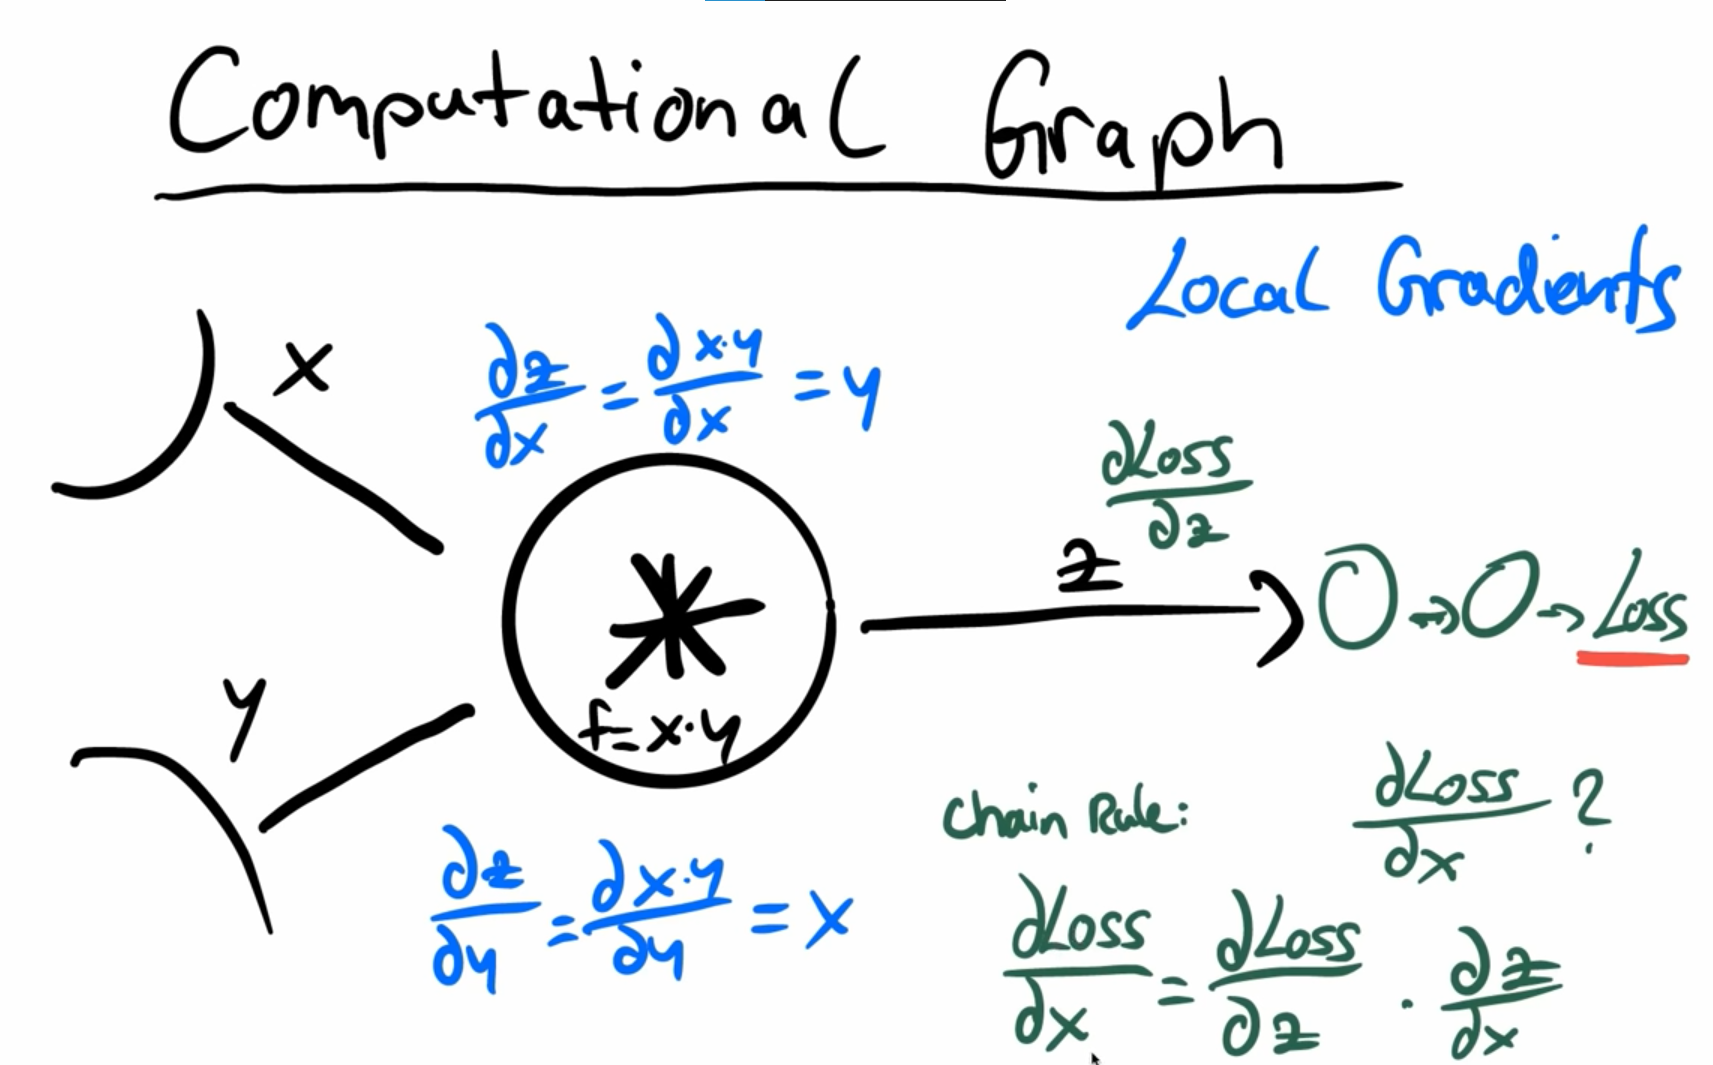 Computational Graph
Local Gradients
x
∂z/∂x = ∂x·y/∂x = y
∂Loss/∂z
z
O → O → Loss
*
f = x·y
y
Chain Rule:
∂Loss/∂x ?
∂z/∂y = ∂x·y/∂y = x
∂Loss/∂x = ∂Loss/∂z · ∂z/∂x